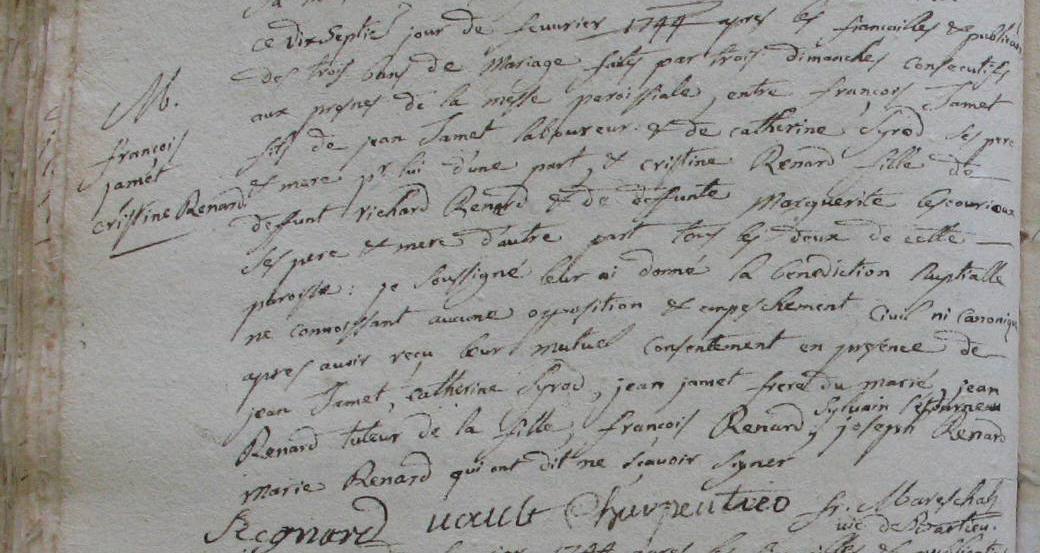 ce dix septie jour de feuvrier 1744 apres les fiancailles & publicaõn
des trois bans de Mariage faits par trois dimanches consecutifs
aux prosnes de la messe paroissiale, entre françois Jamet
fils de jean Jamet laboureur & de catherine Syrod ses pere
& mere pr lui d'une part, & cristine Renard fille de
deffunt richard Renard & de deffunte Marguerite
ses pere & mere d'autre part tous les deux de cette
paroisse: je soussigné leur ai donné la benediction nuptialle
ne connoissant aucune opposition & empeschement civil ni canonique
apres avoir reçu leur mutuel consentement en presence de
jean Jamet, catherine Syrod, jean jamet frere du marié, jean
Renard tuteur de la fille, françois Renard, Sylvain joseph Renard
Marie Renard qui ont dit ne sçavoir signer
M.
françois
jamet
cristine Renard
Regnard Charpentier fr. Mareschal